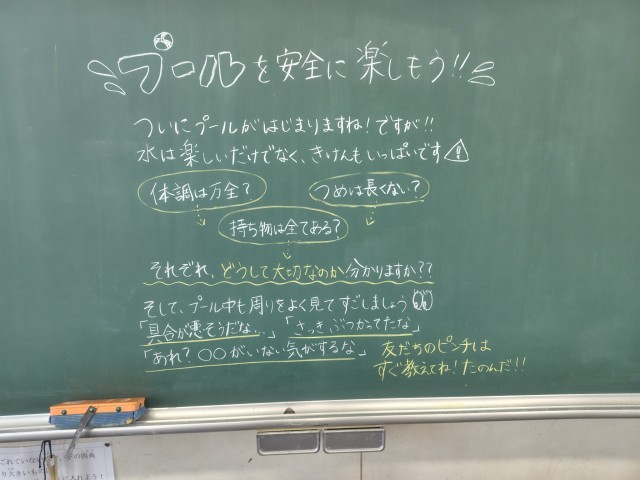 プールを安全に楽しもう!!
ついにプールがはじまりますね!ですが!!
水は楽しいだけでなく、きけんもいっぱいです
体調は万全?
つめは長くない?
持ち物は全てある?
それぞれ、どうして大切なのか分かりますか??
そして、プール中も周りをよく見てすごしましょう
「具合が悪そうだな…」「さっき、ぶつかってたな」
「あれ?〇〇がいない気がするな」
友だちのピンチは
すぐ教えてね!たのんだ!!